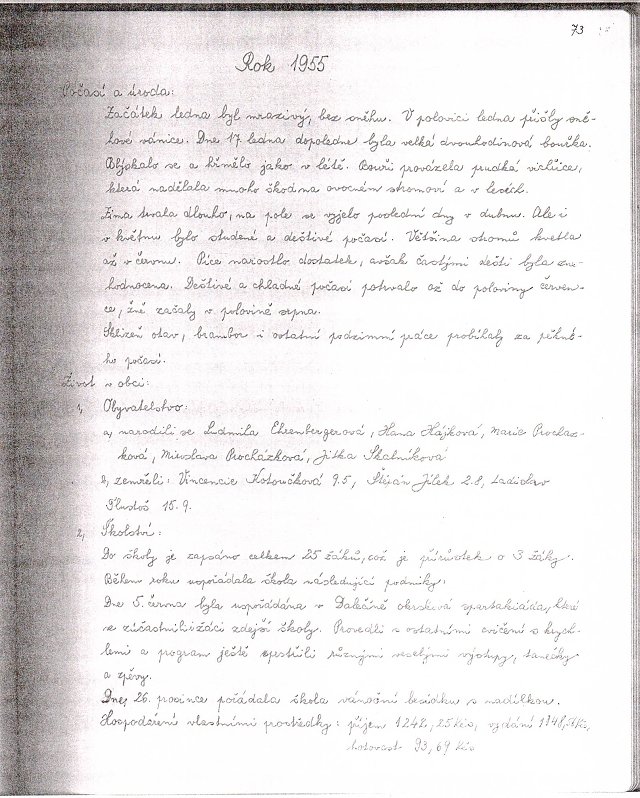 73
Rok 1955
Počasí a úroda:
Začátek ledna byl mrazivý, bez sněhu. V polovici ledna přišly sně-
hové vánice. Dne 17. ledna dopoledne byla velká dvouhodinová bouřka.
Blýskalo se a hřmělo jako v létě. Bouři provázela prudká vichřice,
která nadělala mnoho škod na ovocném stromoví a v lesích.
Zima trvala dlouho, na pole se vyjelo poslední dny v dubnu. Ale i
v květnu bylo studené a deštivé počasí. Většina stromů kvetla
až v červnu. Píce narostlo dostatek, avšak častými dešti byla zne-
hodnocena. Deštivé a chladné počasí potrvalo až do poloviny červen-
ce, žně začaly v polovině srpna.
Sklizeň otav, brambor i ostatní podzimní práce probíhaly za pěkné-
ho počasí.
Život v obci:
1, Obyvatelstvo:
a, narodili se Ludmila Ehrenbergerová, Hana Hájková, Marie Procház-
ková, Miroslava Procházková, Jitka Skalníková
b, zemřeli: Vincencie Kotoučková 9.5, Štěpán Jílek 2.8, Ladislav
15.9.
2, Školství:
Do školy je zapsáno celkem 25 žáků, což je přírůstek o 3 žáky.
Během roku uspořádala škola následující podniky:
Dne 5. června byla uspořádána v Dalečíně okrsková spartakiáda, které
se zúčastnili žáci zdejší školy. Provedli s ostatními cvičení s krych-
lemi a program ještě zpestřili různými veselými výstupy, tanečky
a zpěvy.
Dne 26. prosince pořádala škola vánoční besídku s nadílkou.
Hospodaření vlastními prostředky: příjem 1242,25 Kčs, vydání
hotovost 93,69 Kčs